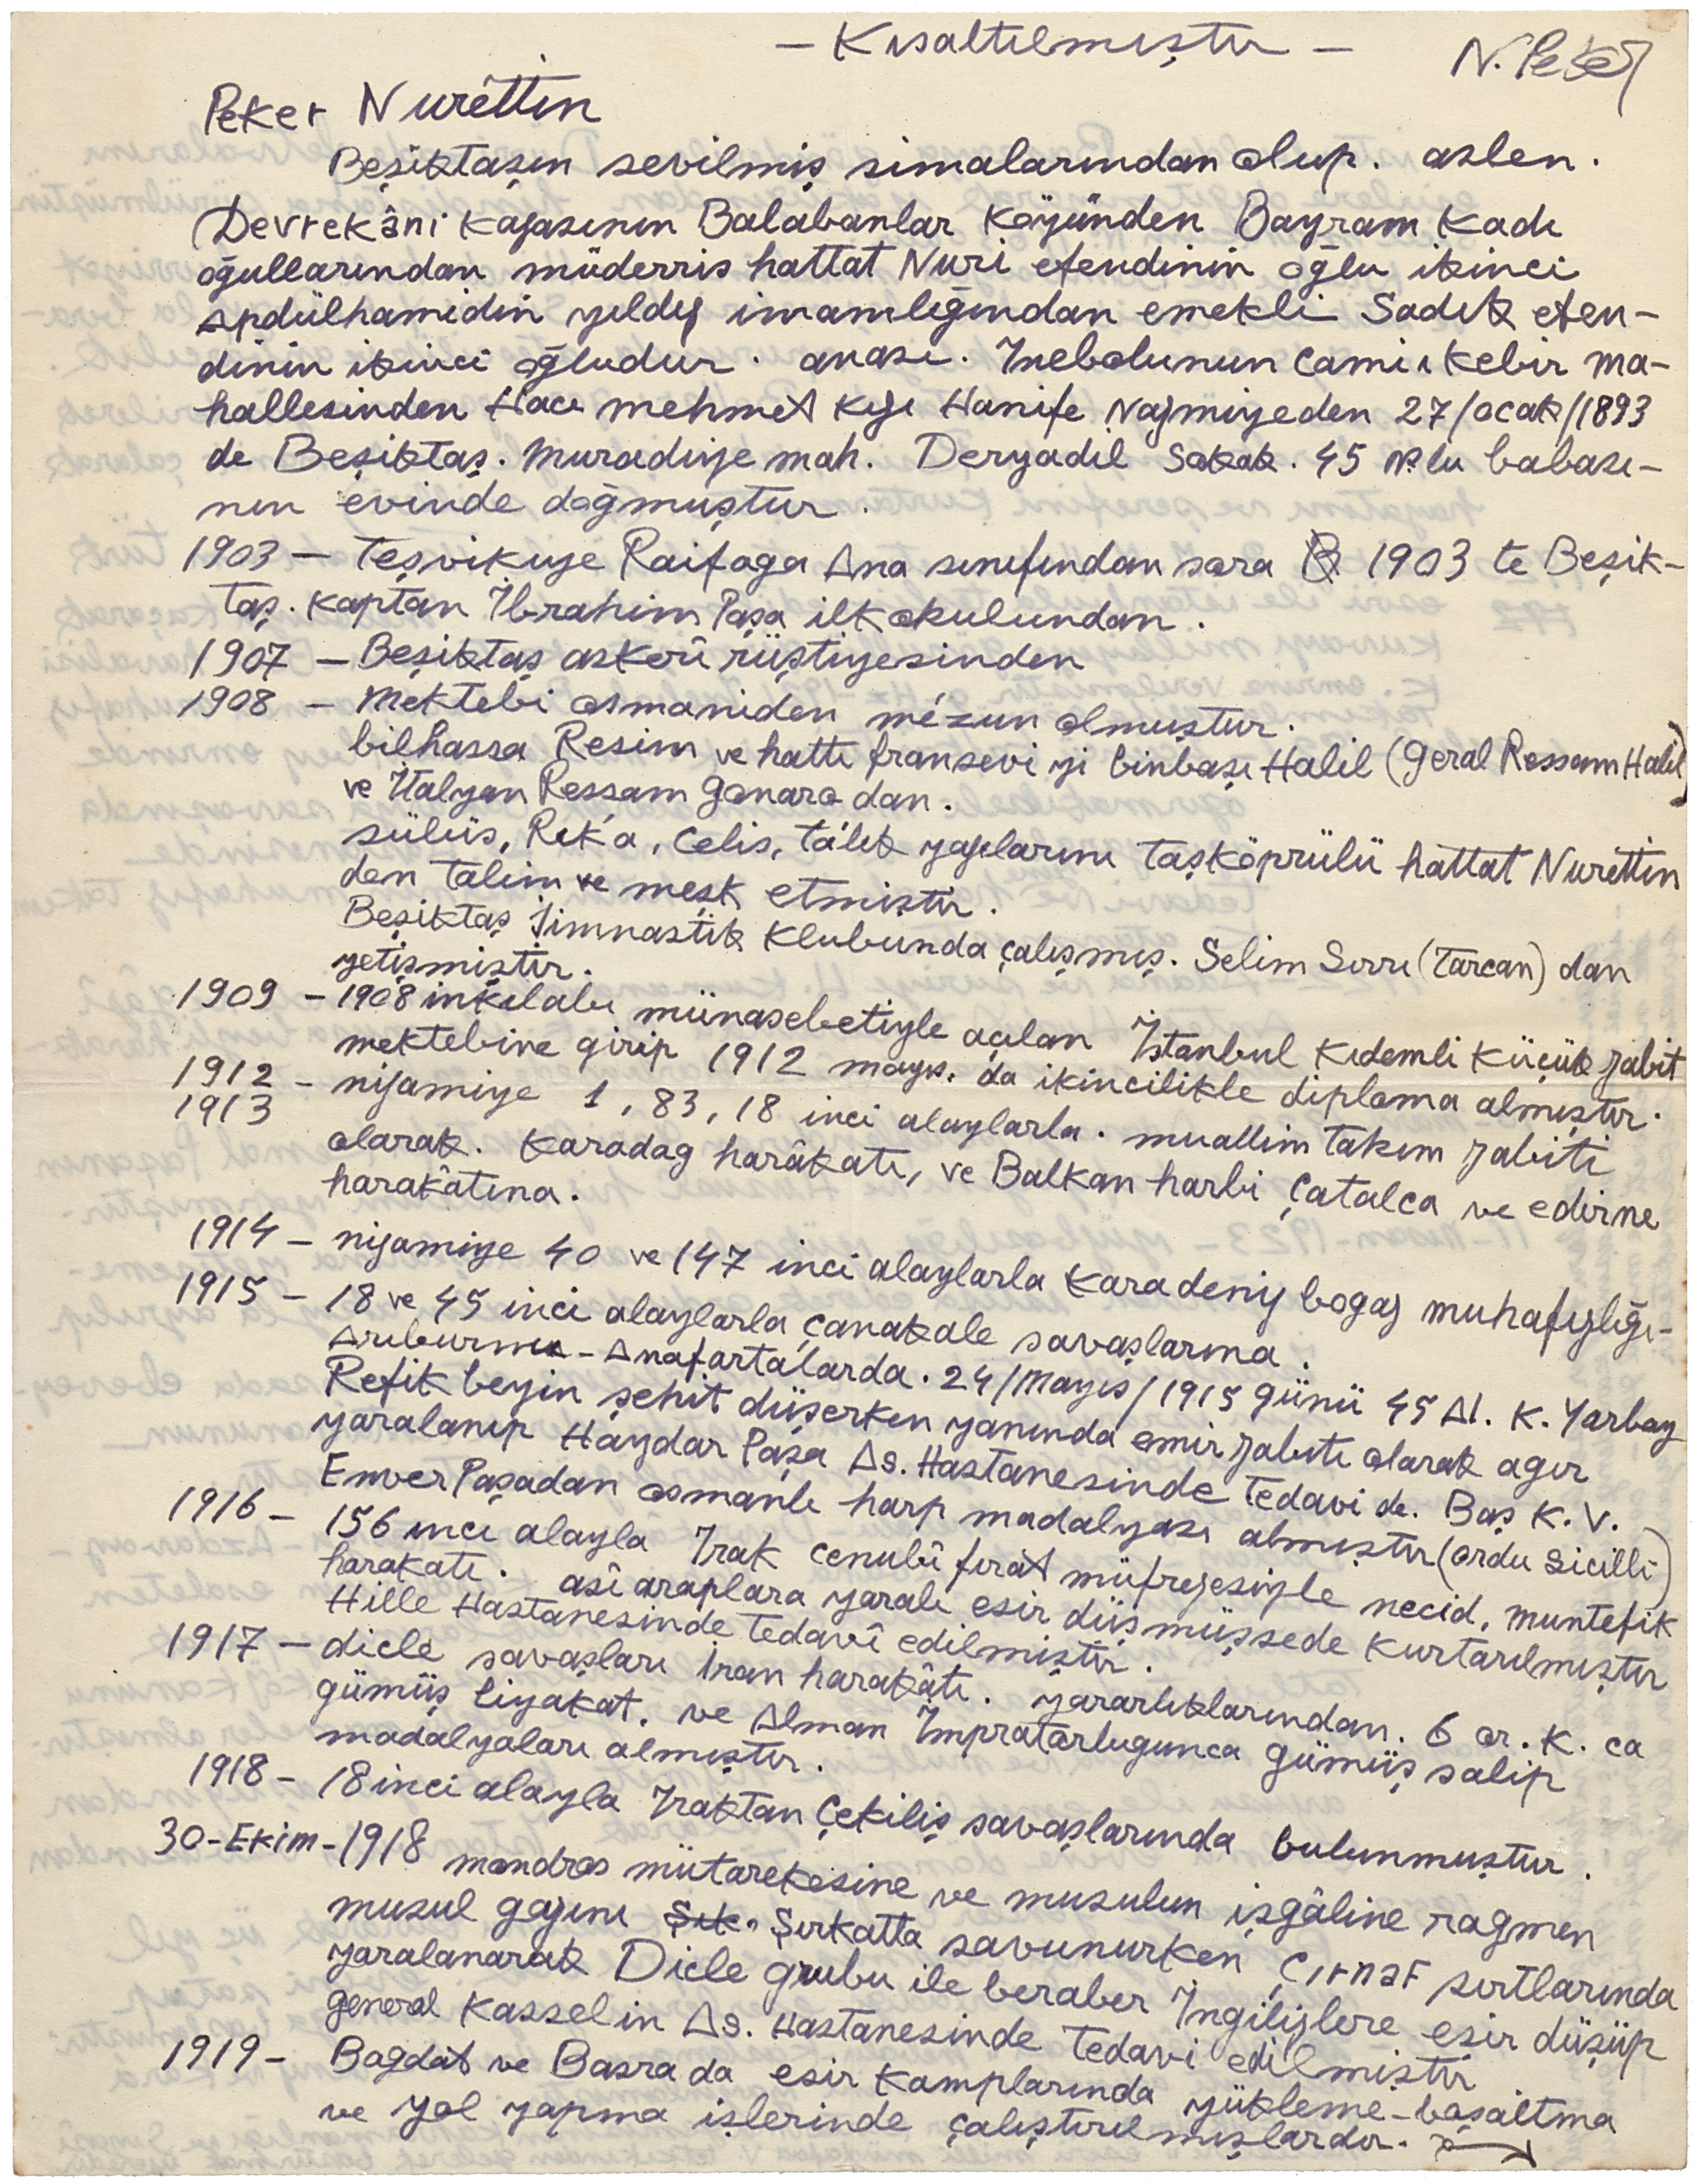 — Kısaltılmıştır —
N. Peker
Peker Nurêttin
Beşiktaşın sevilmiş simalarından olup. aslen.
Devrekâni kazasının Balabanlar köyünden Bayram Kadı
oğullarından müderris hattat Nuri efendinin oğlu ikinci
Apdülhamidin yıldız imamlığından emekli Sadık efen-
dinin ikinci oğludur. anası. Inebolunun Cami ı kebir ma-
hallesinden Hacı mehmet kızı Hanife Nazmiyeden 27/ocak/1893
de Beşiktaş. Muradiye mah. Deryadil Sokak. 45 No.lu babası-
nın evinde doğmuştur.
1903 — Teşvikiye Raifaga Ana sınıfından sora 1903 te Beşik-
taş. Kaptan İbrahim Paşa ilk okulundan.
1907 — Beşiktaş askerî rüştiyesinden
1908 — Mektebi osmaniden mézun olmuştur.
bilhassa Resim ve hattı fransevi yi binbaşı Halil (Geral Ressam Halil)
ve İtalyan Ressam Gonaro dan.
sülüs, Rık'a, Celis, tâlik yazılarını Taşköprülü hattat Nurettin
den talim ve meşk etmiştir.
Beşiktaş Jimnastik Klubunda çalışmış. Selim Sırrı (Tarcan) dan
yetişmiştir.
1909 — 1908 inkılabı münasebetiyle açılan İstanbul Kıdemli Küçük zabit
mektebine girip 1912 mayıs. da ikincilikle diploma almıştır.
1912 — nizamiye 1, 83, 18 inci alaylarla. muallim takım zabiti
1913
olarak. Karadag harâkatı, ve Balkan harbi Çatalca ve edirne
harakâtına.
1914 — nizamiye 40 ve 147 inci alaylarla Karadeniz bogaz muhafızlığı-
1915 — 18 ve 45 inci alaylarla Çanakale savaşlarına.
Arıburnu - Anafartalarda. 24/Mayıs/1915 günü 45 Al. K. Yarbay
Refik beyin şehit düşerken yanında emir zabiti olarak agır
yaralanıp Haydar Paşa As. Hastanesinde tedavi de. Baş K. V.
Enver Paşadan osmanlı harp madalyası almıştır (ordu sicilli)
1916 — 156 ıncı alayla Irak cenubî fırat müfrezesiyle necid, muntefik
harakatı. asî araplara yaralı esir düşmüşsede kurtarılmıştır
Hille Hastanesinde tedavî edilmiştir.
1917 — dicle savaşları İran harakâtı. yararlıklarından. 6 or. K. ca
gümüş liyakat. ve Alman İmpratorlugunca gümüş salip
madalyaları almıştır.
1918 — 18 inci alayla Iraktan Çekiliş savaşlarında bulunmuştur.
30-Ekim-1918 mondros mütarekesine ve musulun işgâline ragmen
musul gazını Şık. Şırkatta savunurken Çırnaf sırtlarında
yaralanarak Dicle grubu ile beraber İngilizlere esir düşüp
general Kasselin As. Hastanesinde tedavi edilmiştir
1919 — Bagdat ve Basra da esir Kamplarında yükleme-boşaltma
ve yol yapma işlerinde çalıştırılmışlardır.